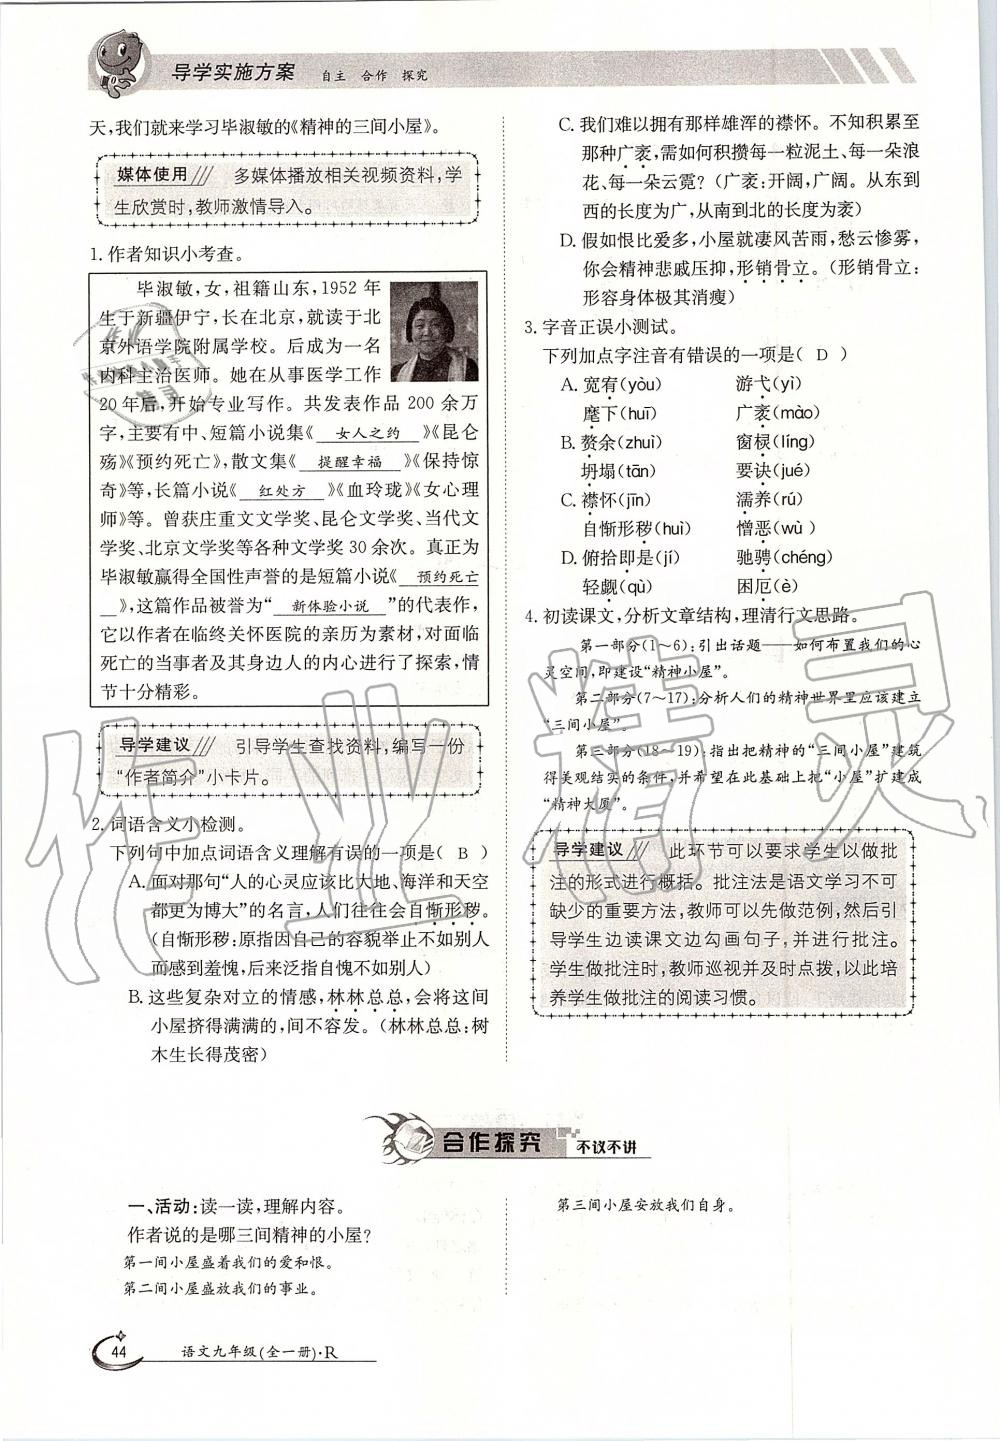 导学实施方案 自主 合作 探究
天,我们就来学习毕淑敏的《精神的三间小屋》。
媒体使用 多媒体播放相关视频资料,学
生欣赏时,教师激情导入。
1. 作者知识小考查。
毕淑敏,女,祖籍山东,1952 年
生于新疆伊宁,长在北京,就读于北
京外语学院附属学校。后成为一名
内科主治医师。她在从事医学工作
20 年后,开始专业写作。共发表作品 200 余万
字,主要有中、短篇小说集《 女人之约 》《昆仑
殇》《预约死亡》,散文集《 提醒幸福 》《保持惊
奇》等,长篇小说《 红处方 》《血玲珑》《女心理
师》等。曾获庄重文文学奖、昆仑文学奖、当代文
学奖、北京文学奖等各种文学奖 30 余次。真正为
毕淑敏赢得全国性声誉的是短篇小说《 预约死亡
》,这篇作品被誉为“ 新体验小说 ”的代表作,
它以作者在临终关怀医院的亲历为素材,对面临
死亡的当事者及其身边人的内心进行了探索,情
节十分精彩。
导学建议 引导学生查找资料,编写一份
“作者简介”小卡片。
2. 词语含义小检测。
下列句中加点词语含义理解有误的一项是( B )
A. 面对那句“人的心灵应该比大地、海洋和天空
都更为博大”的名言,人们往往会自惭形秽。
(自惭形秽:原指因自己的容貌举止不如别人
而感到羞愧,后来泛指自愧不如别人)
B. 这些复杂对立的情感,林林总总,会将这间
小屋挤得满满的,间不容发。(林林总总:树
木生长得茂密)
C. 我们难以拥有那样雄浑的襟怀。不知积累至
那种广袤,需如何积攒每一粒泥土、每一朵浪
花、每一朵云霓?(广袤:开阔,广阔。从东到
西的长度为广,从南到北的长度为袤)
D. 假如恨比爱多,小屋就凄风苦雨,愁云惨雾,
你会精神悲戚压抑,形销骨立。(形销骨立:
形容身体极其消瘦)
3. 字音正误小测试。
下列加点字注音有错误的一项是( D )
A. 宽宥(yòu) 游弋(yì)
麾下(huī) 广袤(mào)
B. 赘余(zhuì) 窗棂(líng)
坍塌(tān) 要诀(jué)
C. 襟怀(jīn) 濡养(rú)
自惭形秽(huì) 憎恶(wù )
D. 俯拾即是(jí) 驰骋(chéng)
轻觑(qù) 困厄(è)
4. 初读课文,分析文章结构,理清行文思路。
第一部分(1~6):引出话题——如何布置我们的心
灵空间,即建设“精神小屋”。
第二部分(7~17):分析人们的精神世界里应该建立
“三间小屋”。
第三部分(18~19):指出把精神的“三间小屋”建筑
得美观结实的条件,并希望在此基础上把“小屋”扩建成
“精神大厦”。
导学建议 此环节可以要求学生以做批
注的形式进行概括。批注法是语文学习不可
缺少的重要方法,教师可以先做范例,然后引
导学生边读课文边勾画句子,并进行批注。
学生做批注时,教师巡视并及时点拨,以此培
养学生做批注的阅读习惯。
合作探究 不议不讲
一、活动:读一读,理解内容。
作者说的是哪三间精神的小屋?
第一间小屋盛着我们的爱和恨。
第二间小屋盛放我们的事业。
第三间小屋安放我们自身。
44 语文九年级(全一册)·R
作业精灵